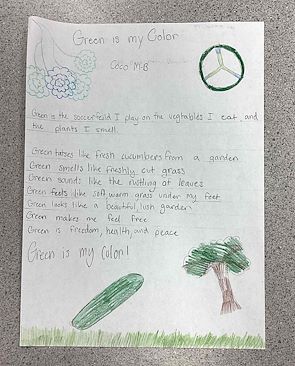 Green is my Color
Coco M-B
Green is the soccerfield I play on the vegtables I eat and
the plants I smell.
Green tastes like fresh cucumbers from a garden
Green smells like freshly cut grass
Green sounds like the rustling of leaves
Green feels like soft, warm grass under my feet
Green looks like a beautiful, lush garden
Green makes me feel free
Green is freedom, health, and peace
Green is my Color!